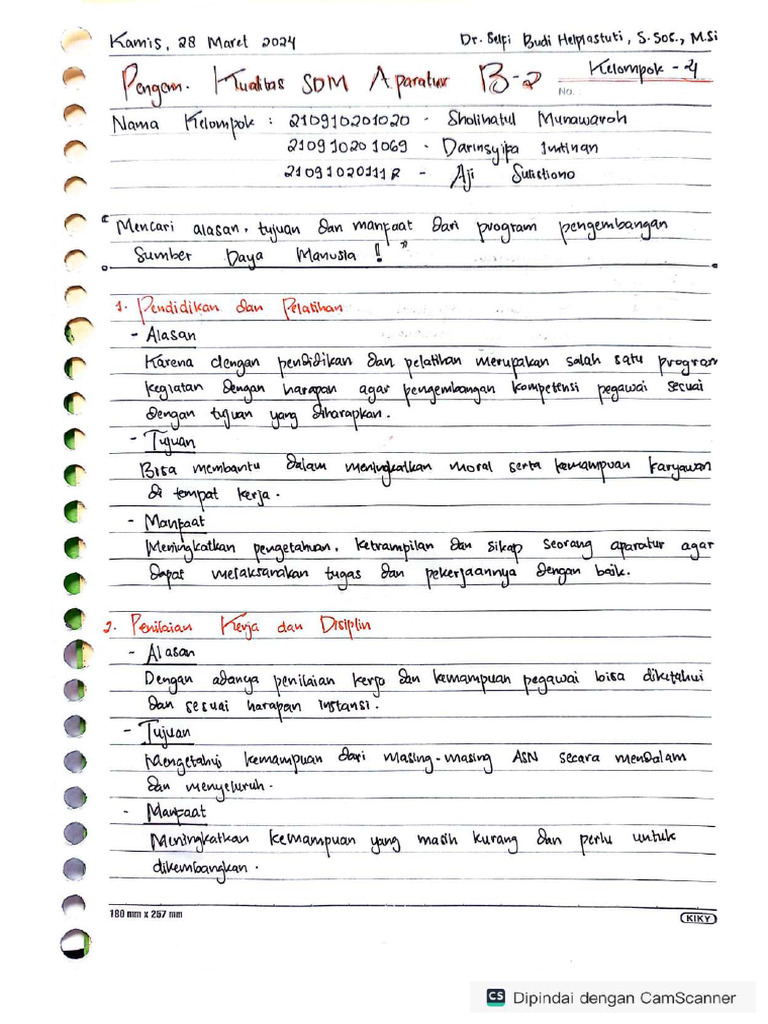 Kamis, 28 Maret 2024
Dr. Selfi Budi Helpiastuti, S.Sos., M.Si
Pengem. Kualitas SDM Aparatur B-2
Kelompok - 4
No.
Nama Kelompok : 210910201020 - Sholihatul Munawaroh
210910201069 - Darinsyifa Imtinan
210910201112 - Aji Sulistiono
" Mencari alasan, tujuan dan manfaat dari program pengembangan
Sumber Daya Manusia ! "
1. Pendidikan dan Pelatihan
- Alasan
Karena dengan pendidikan dan pelatihan merupakan salah satu program
kegiatan dengan harapan agar pengembangan kompetensi pegawai sesuai
dengan tujuan yang diharapkan.
- Tujuan
Bisa membantu dalam meningkatkan moral serta kemampuan karyawan
di tempat kerja.
- Manfaat
Meningkatkan pengetahuan, ketrampilan dan sikap seorang aparatur agar
dapat melaksanakan tugas dan pekerjaannya dengan baik.
2. Penilaian Kerja dan Disiplin
- Alasan
Dengan adanya penilaian kerja dan kemampuan pegawai bisa diketahui
dan sesuai harapan instansi.
- Tujuan
Mengetahui kemampuan dari masing-masing ASN secara mendalam
dan menyeluruh.
- Manfaat
Meningkatkan kemampuan yang masih kurang dan perlu untuk
dikembangkan.
180 mm x 257 mm
KIKY
CS Dipindai dengan CamScanner